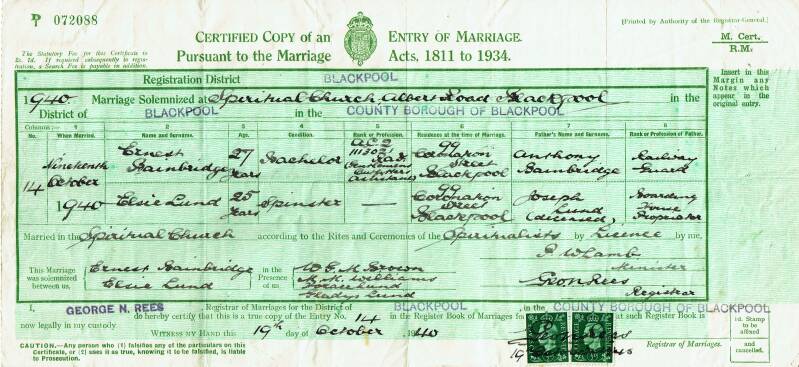 P 072088
CERTIFIED COPY of an ENTRY OF MARRIAGE.
Pursuant to the Marriage Acts, 1811 to 1934.
[Printed by Authority of the Registrar-General.]
M. Cert.
R.M.
The Statutory Fee for this Certificate is 2s. 7d. If required subsequently to registration, a Search Fee is payable in addition.
Insert in this Margin any Notes which appear in the original entry.
Registration District BLACKPOOL
1940. Marriage Solemnized at Spiritual Church Albert Road Blackpool in the
District of BLACKPOOL in the COUNTY BOROUGH OF BLACKPOOL
Columns:— 1 2 3 4 5 6 7 8
No. When Married. Name and Surname. Age. Condition. Rank or Profession. Residence at the time of Marriage. Father's Name and Surname. Rank or Profession of Father.
14
Nineteenth October 1940
Ernest Bainbridge
27 Years
Bachelor
A.C.2 R.A.F.
99 Coronation Street Blackpool
Anthony Bainbridge
Railway Guard
Elsie Lund
25 Years
Spinster
—
99 Coronation Street Blackpool
Joseph Lund (deceased)
Boarding House Proprietor
Married in the Spiritual Church according to the Rites and Ceremonies of the Spiritualists by Licence by me,
This Marriage was solemnized between us,
Ernest Bainbridge
Elsie Lund
in the Presence of us
M. H. Williams
Gladys Lund
Lamb
Minister
Geo N Rees
Registrar
I, GEORGE N. REES Registrar of Marriages for the District of BLACKPOOL, in the COUNTY BOROUGH OF BLACKPOOL
do hereby certify that this is a true copy of the Entry No. 14 in the Register Book of Marriages for at such Register Book is
now legally in my custody
WITNESS MY HAND this 19th day of October 1940
Registrar of Marriages.
1d. Stamp to be affixed and cancelled.
CAUTION.—Any person who (1) falsifies any of the particulars on this Certificate, or (2) uses it as true, knowing it to be falsified, is liable to Prosecution.